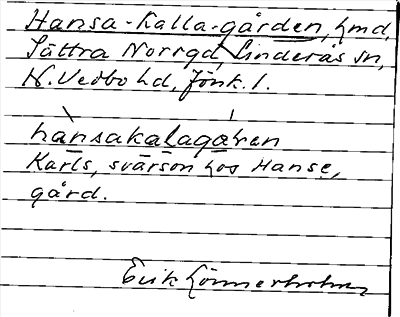 Hansa-Kalla-gården, hmd,
Sättra Norrgd, Linderås sn,
N. Vedbo hd, Jönk. l.
hansakalagaren
Karls, svärson hos Hanse,
gård.
Erik Lönnerholm